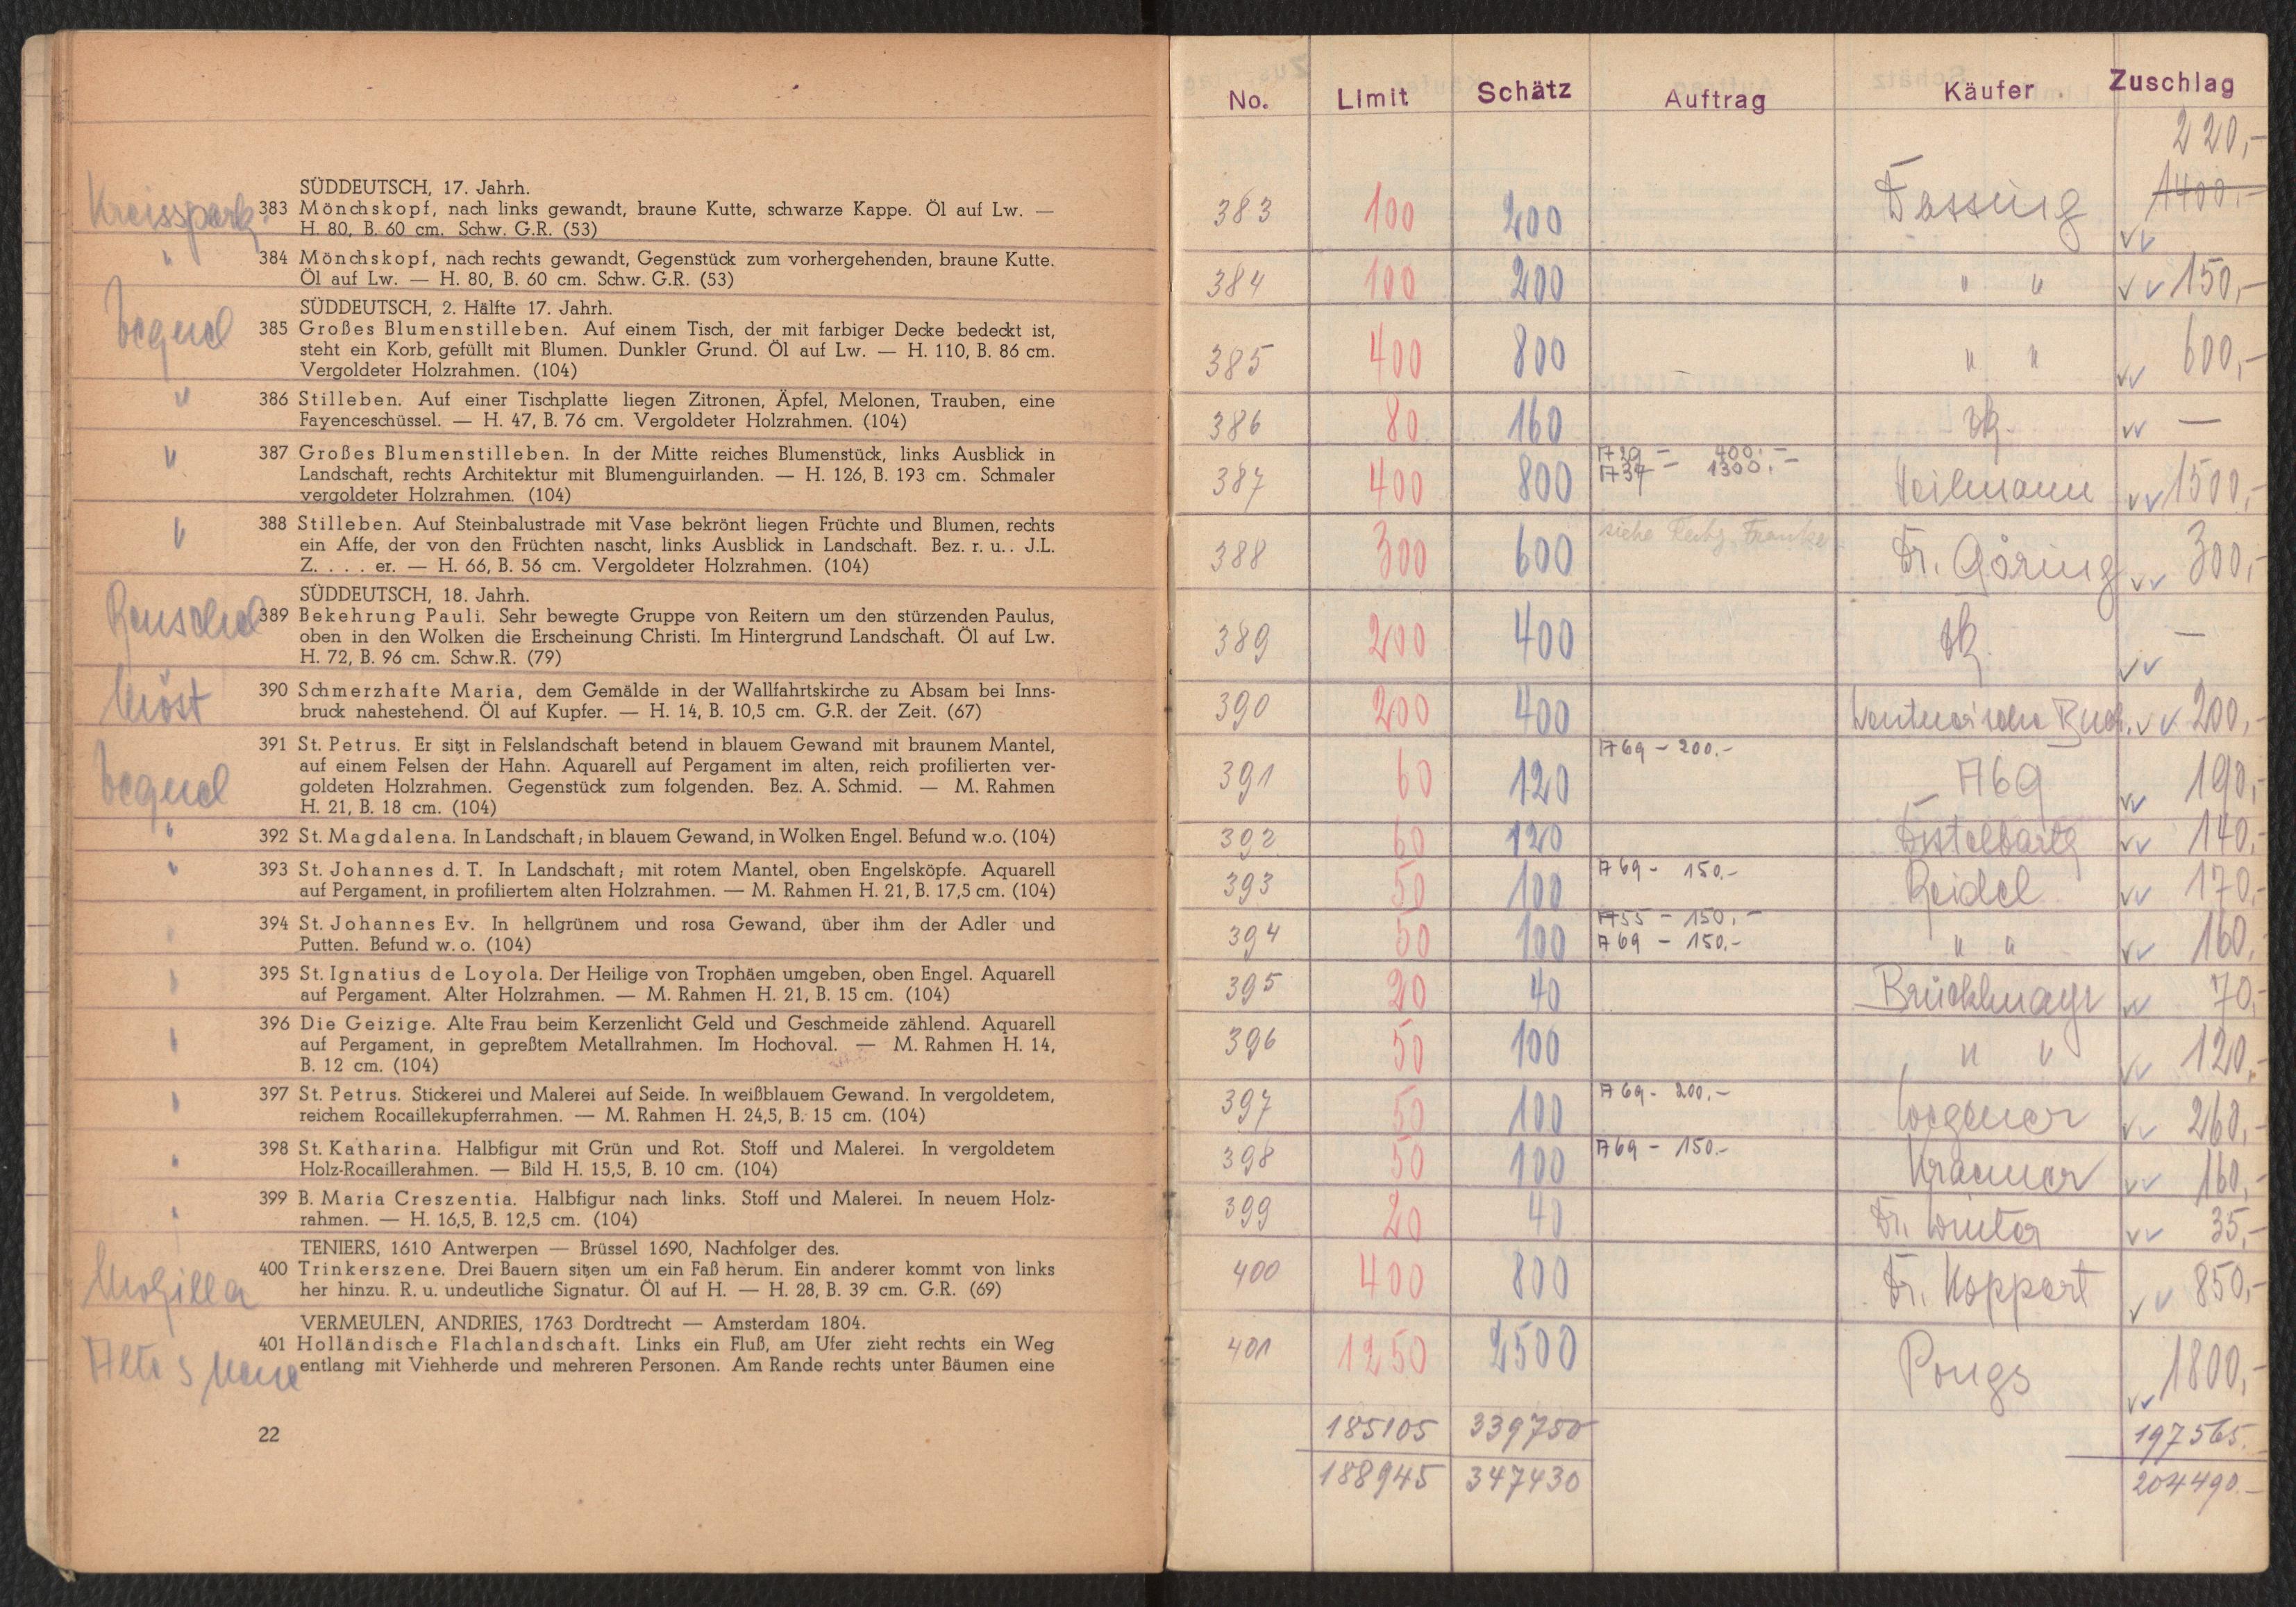 SÜDDEUTSCH, 17. Jahrh.
Kreisspark.
383 Mönchskopf, nach links gewandt, braune Kutte, schwarze Kappe. Öl auf Lw. —
H. 80, B. 60 cm. Schw. G.R. (53)
" 384 Mönchskopf, nach rechts gewandt, Gegenstück zum vorhergehenden, braune Kutte.
Öl auf Lw. — H. 80, B. 60 cm. Schw. G.R. (53)
SÜDDEUTSCH, 2. Hälfte 17. Jahrh.
385 Großes Blumenstilleben. Auf einem Tisch, der mit farbiger Decke bedeckt ist,
steht ein Korb, gefüllt mit Blumen. Dunkler Grund. Öl auf Lw. — H. 110, B. 86 cm.
Vergoldeter Holzrahmen. (104)
" 386 Stilleben. Auf einer Tischplatte liegen Zitronen, Äpfel, Melonen, Trauben, eine
Fayenceschüssel. — H. 47, B. 76 cm. Vergoldeter Holzrahmen. (104)
" 387 Großes Blumenstilleben. In der Mitte reiches Blumenstück, links Ausblick in
Landschaft, rechts Architektur mit Blumenguirlanden. — H. 126, B. 193 cm. Schmaler
vergoldeter Holzrahmen. (104)
" 388 Stilleben. Auf Steinbalustrade mit Vase bekrönt liegen Früchte und Blumen, rechts
ein Affe, der von den Früchten nascht, links Ausblick in Landschaft. Bez. r. u.. J.L.
Z. . . . er. — H. 66, B. 56 cm. Vergoldeter Holzrahmen. (104)
SÜDDEUTSCH, 18. Jahrh.
389 Bekehrung Pauli. Sehr bewegte Gruppe von Reitern um den stürzenden Paulus,
oben in den Wolken die Erscheinung Christi. Im Hintergrund Landschaft. Öl auf Lw.
H. 72, B. 96 cm. Schw.R. (79)
Möst
390 Schmerzhafte Maria, dem Gemälde in der Wallfahrtskirche zu Absam bei Inns-
bruck nahestehend. Öl auf Kupfer. — H. 14, B. 10,5 cm. G.R. der Zeit. (67)
391 St. Petrus. Er sitzt in Felslandschaft betend in blauem Gewand mit braunem Mantel,
auf einem Felsen der Hahn. Aquarell auf Pergament im alten, reich profilierten ver-
goldeten Holzrahmen. Gegenstück zum folgenden. Bez. A. Schmid. — M. Rahmen
H. 21, B. 18 cm. (104)
" 392 St. Magdalena. In Landschaft; in blauem Gewand, in Wolken Engel. Befund w.o. (104)
" 393 St. Johannes d. T. In Landschaft; mit rotem Mantel, oben Engelsköpfe. Aquarell
auf Pergament, in profiliertem alten Holzrahmen. — M. Rahmen H. 21, B. 17,5 cm. (104)
" 394 St. Johannes Ev. In hellgrünem und rosa Gewand, über ihm der Adler und
Putten. Befund w. o. (104)
" 395 St. Ignatius de Loyola. Der Heilige von Trophäen umgeben, oben Engel. Aquarell
auf Pergament. Alter Holzrahmen. — M. Rahmen H. 21, B. 15 cm. (104)
" 396 Die Geizige. Alte Frau beim Kerzenlicht Geld und Geschmeide zählend. Aquarell
auf Pergament, in gepreßtem Metallrahmen. Im Hochoval. — M. Rahmen H. 14,
B. 12 cm. (104)
" 397 St. Petrus. Stickerei und Malerei auf Seide. In weißblauem Gewand. In vergoldetem,
reichem Rocaillekupferrahmen. — M. Rahmen H. 24,5, B. 15 cm. (104)
" 398 St. Katharina. Halbfigur mit Grün und Rot. Stoff und Malerei. In vergoldetem
Holz-Rocaillerahmen. — Bild H. 15,5, B. 10 cm. (104)
" 399 B. Maria Creszentia. Halbfigur nach links. Stoff und Malerei. In neuem Holz-
rahmen. — H. 16,5, B. 12,5 cm. (104)
TENIERS, 1610 Antwerpen — Brüssel 1690, Nachfolger des.
400 Trinkerszene. Drei Bauern sitzen um ein Faß herum. Ein anderer kommt von links
her hinzu. R. u. undeutliche Signatur. Öl auf H. — H. 28, B. 39 cm. G.R. (69)
VERMEULEN, ANDRIES, 1763 Dordtrecht — Amsterdam 1804.
401 Holländische Flachlandschaft. Links ein Fluß, am Ufer zieht rechts ein Weg
entlang mit Viehherde und mehreren Personen. Am Rande rechts unter Bäumen eine
22
No. Limit Schätz Auftrag Käufer Zuschlag
220,-
383 100 200 Dassing 1400,-
384 100 200 " " 150,-
385 400 800 " " 600,-
386 80 160 zk. —
A 29 - 400.-
387 400 800 A 34 - 1300.- Heilmann 1500,-
388 300 600 siehe Franke Dr. Göring 300,-
389 200 400 zk. —
390 200 400 200,-
A 69 - 200.-
391 60 120 A 69 190,-
392 60 120 Distelbarth 140,
A 69 - 150.-
393 50 100 Reidel 170,-
A 55 - 150.-
394 50 100 A 69 - 150.- " " 160,
395 20 40 Brücklmayr 70,-
396 50 100 " " 120,-
A 69 - 200.-
397 50 100 Wegener 260,-
A 69 - 150.-
398 50 100 Kraemer 160,-
399 20 40 Dr. Winter 35,-
400 400 800 Dr. Koppert 850,-
401 1250 2500 Pongs 1800,-
185105 339750 197565.
188945 347430 204490.-